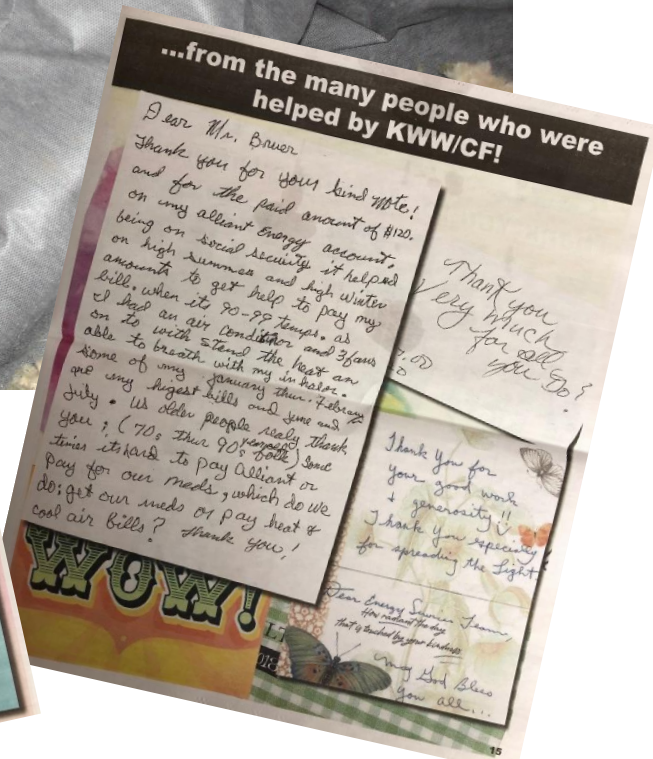 ...from the many people who were
helped by KWW/CF!
Dear Mr. Bruer
Thank you for your kind note!
and for the paid amount of $120.
on my alliant Energy account.
being on social security it helped
on high summer and high winter
amounts to get help to pay my
bill. when its 90-99 temps. as
I had an air conditior and 3 fans
on to with stend the heat an
able to breath with my inhalor.
some of my january thur. February
are my higest bills and june and
july. us older people realy thank
you; (70s thur 90s folk) some
times its hard to pay Alliant or
pay for our meds, which do we
do; get our meds or pay heat &
cool air bills? Thank you!
Thank you
Very much
for all
you do!
.00
Thank You for
your good work
& generosity!!
Thank You especially
for spreading the Light
Dear Energy Services Team,
How radiant the day
that is touched by your kindness
May God Bless
you all...
WOW!
15